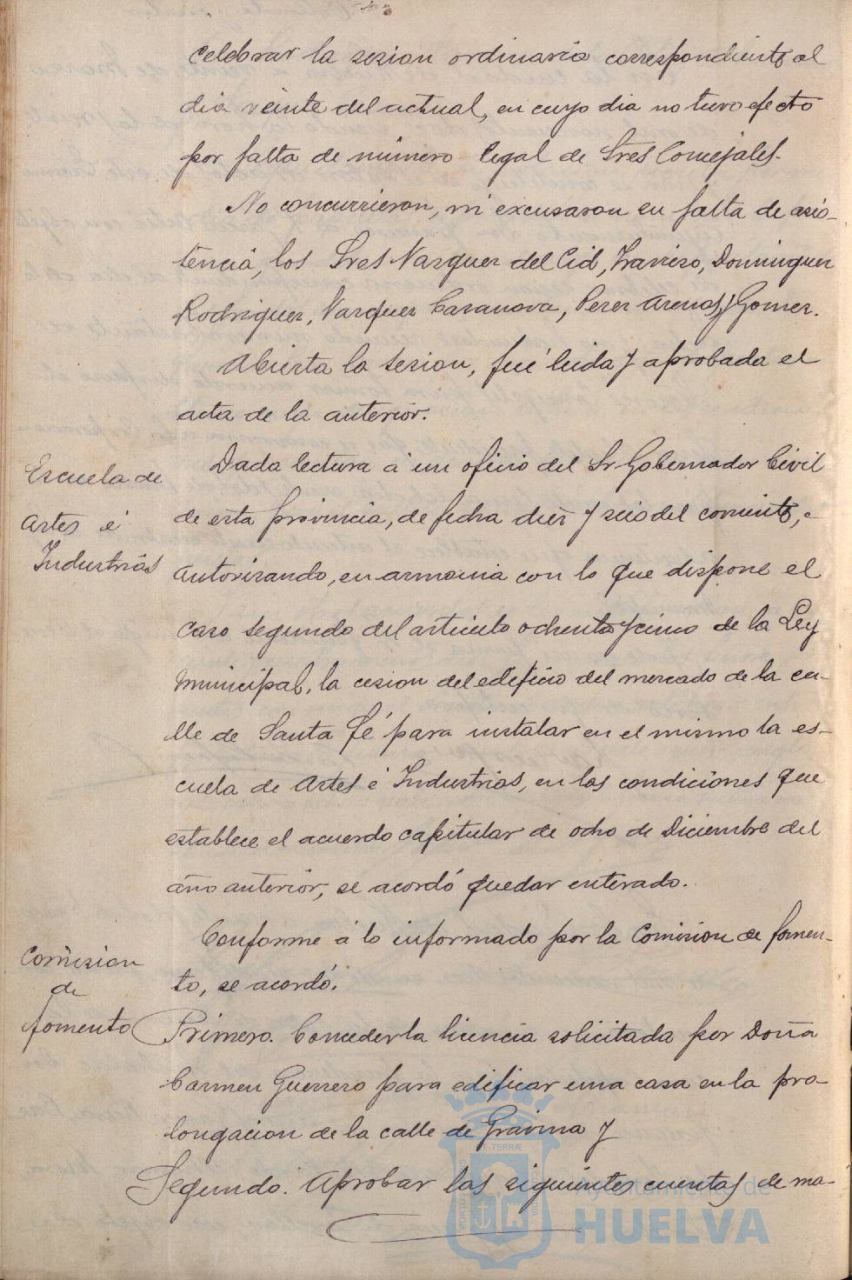 celebrar la sesion ordinaria correspondiente al
dia veinte del actual, en cuyo dia no tuvo efecto
por falta de número legal de Sres Concejales.
No concurrieron, ni excusaron su falta de asis-
tencia, los Sres Vazquez del Cid, Travieso, Dominguez
Rodriguez, Vazquez Casanova, Perez Arenas y Gomez.
Abierta la sesion, fué leida y aprobada el
acta de la anterior.
Escuela de
Artes é
Industrias
Dada lectura á un oficio del Sr Gobernador Civil
de esta provincia, de fecha diez y seis del corriente,
autorizando, en armonia con lo que dispone el
caso segundo del articulo ochenta y cinco de la Ley
Municipal, la cesion del edificio del mercado de la ca-
lle de Santa Fé para instalar en el mismo la es-
cuela de Artes é Industrias, en las condiciones que
establece el acuerdo capitular de ocho de Diciembre del
año anterior, se acordó quedar enterado.
Comision
de
fomento
Conforme á lo informado por la Comision de fomen-
to, se acordó.
Primero. Conceder la licencia solicitada por Doña
Carmen Guerrero para edificar una casa en la pro-
longacion de la calle de Gravina y
Segundo. Aprobar las siguientes cuentas de ma-
Ayuntamiento de
HUELVA